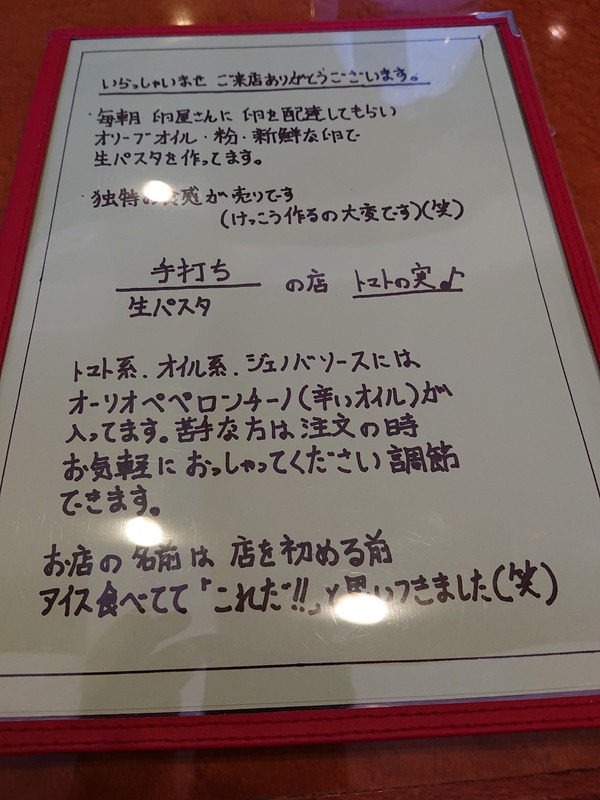 いらっしゃいませ ご来店ありがとうございます。
・毎朝 卵屋さんに 卵を配達してもらい
オリーブオイル・粉・新鮮な卵で
生パスタを作ってます。
・独特の食感が売りです
(けっこう作るの大変です)(笑)
手打ち
生パスタ
の店 トマトの実♪
トマト系.オイル系.ジェノバソースには
オーリオペペロンチーノ(辛いオイル)が
入ってます。苦手な方は注文の時
お気軽におっしゃってください調節
できます。
お店の名前は店を初める前
アイス食べてて「これだ!!」と思いつきました(笑)